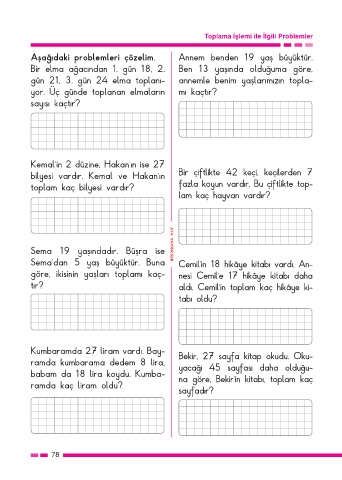 Toplama İşlemi ile İlgili Problemler
Aşağıdaki problemleri çözelim.
Bir elma ağacından 1. gün 18, 2.
gün 21, 3. gün 24 elma toplanı-
yor. Üç günde toplanan elmaların
sayısı kaçtır?
Kemal'in 2 düzine, Hakan'ın ise 27
bilyesi vardır. Kemal ve Hakan'ın
toplam kaç bilyesi vardır?
Sema 19 yaşındadır. Büşra ise
Sema'dan 5 yaş büyüktür. Buna
göre, ikisinin yaşları toplamı kaç-
tır?
Kumbaramda 27 liram vardı. Bay-
ramda kumbarama dedem 8 lira,
babam da 18 lira koydu. Kumba-
ramda kaç liram oldu?
Annem benden 19 yaş büyüktür.
Ben 13 yaşında olduğuma göre,
annemle benim yaşlarımızın topla-
mı kaçtır?
Bir çiftlikte 42 keçi, keçilerden 7
fazla koyun vardır. Bu çiftlikte top-
lam kaç hayvan vardır?
Cemil'in 18 hikâye kitabı vardı. An-
nesi Cemil'e 17 hikâye kitabı daha
aldı. Cemil'in toplam kaç hikâye ki-
tabı oldu?
Bekir, 27 sayfa kitap okudu. Oku-
yacağı 45 sayfası daha olduğu-
na göre, Bekir'in kitabı, toplam kaç
sayfadır?
78